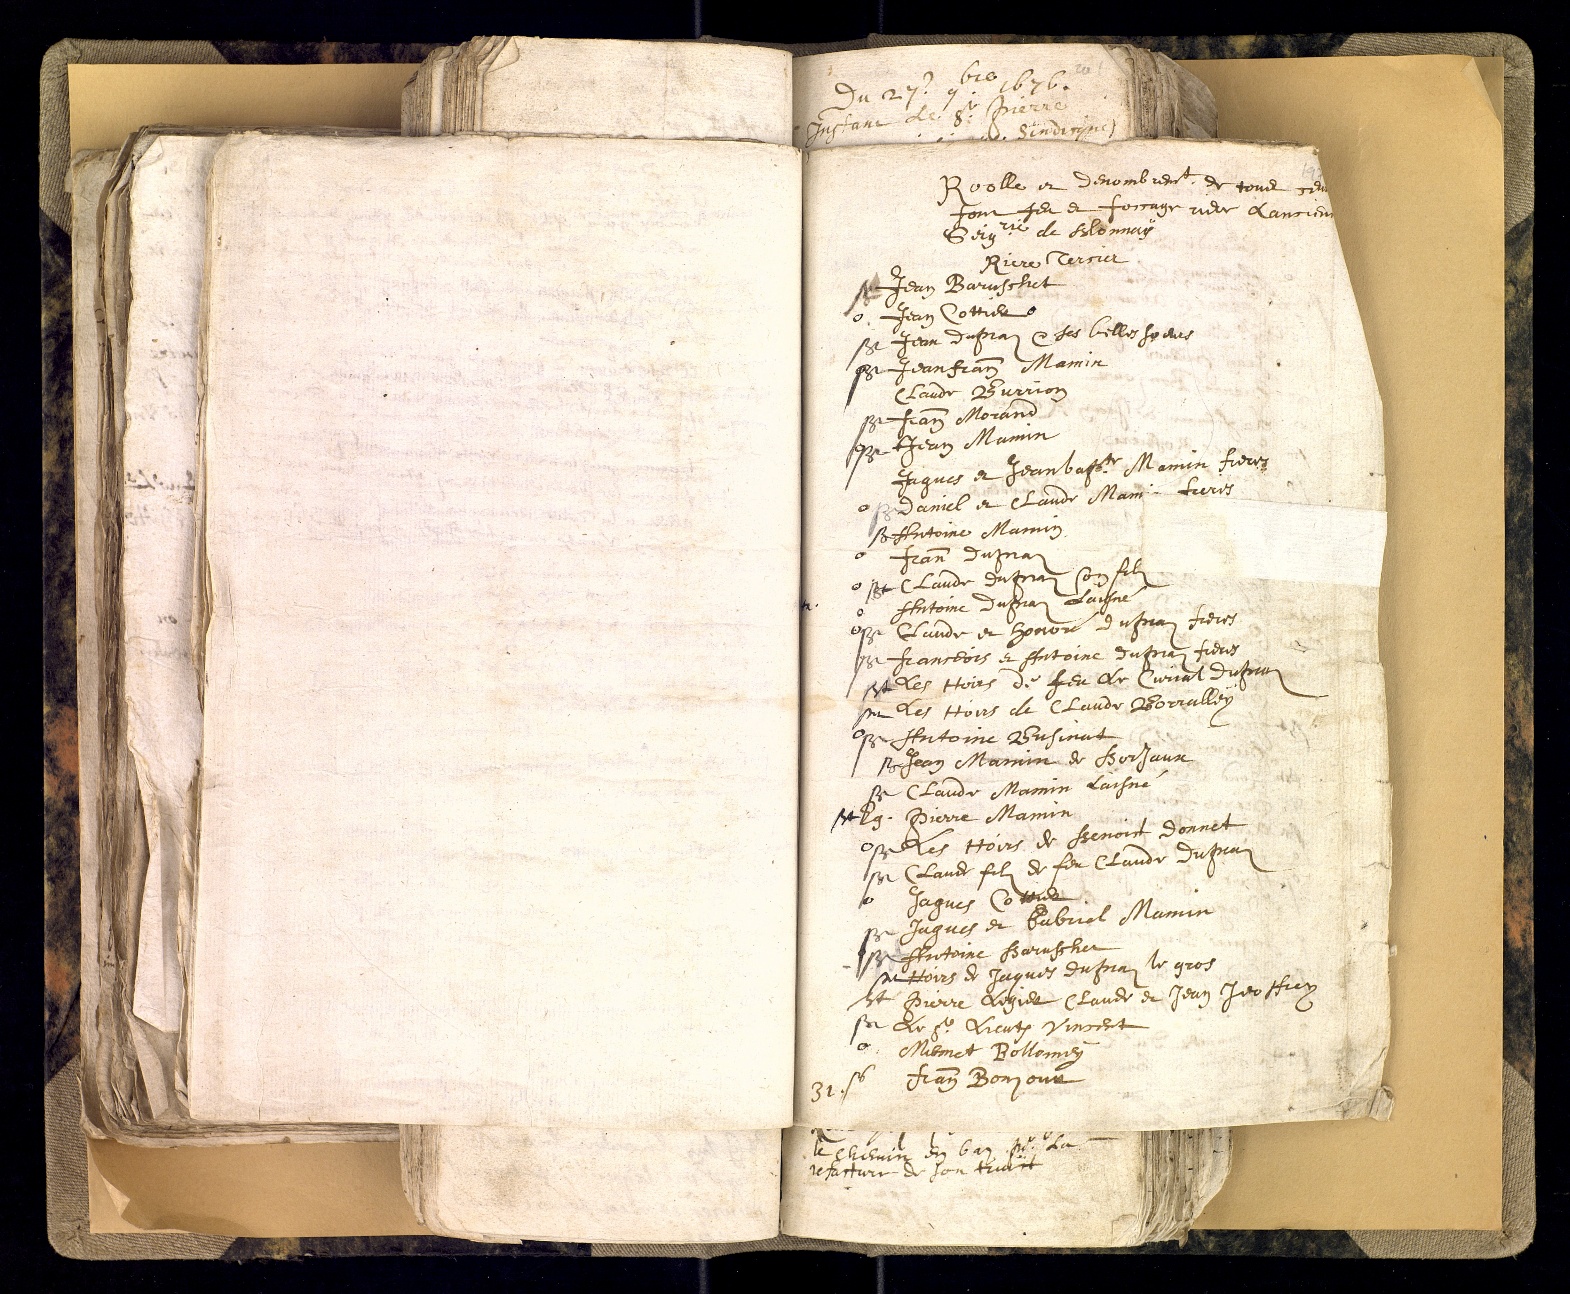 Du 27.e 9bre 1676.
Instant le Sr Pierre
Roolle et denombremt. de tous
font feu et focage riere Lancienne
Seigrie de Blonnaÿ
Riere Tercier
Jean Baruschet
o. Jean Cottier
Jean dupraz & ses belles
Jean fran Mamin
Claude Burrion
fran Morand
Jean Mamin
Jaques et Jean bapste Mamin freres
o Daniel et Claude Mamin freres
Antoine Mamin
o fran dupraz
o Claude dupraz son filz
o Antoine dupraz Laisné
o Claude et honoré dupraz freres
francois et Antoine dupraz freres
Les Hoirs de feu Le Curial dupraz
Les Hoirs de Claude Borralleÿ
o Antoine Businat
Jean Mamin de
Claude Mamin Laisné
Eg. Pierre Mamin
o Les Hoirs de Benoict Donnet
Claude filz de feu Claude dupraz
o Jaques Cottier
Jaques et Gabriel Mamin
Antoine Baruschet
Hoirs de Jaques dupraz le gros
Pierre Legier Claude et Jean Jeoffrey
Le Sr. Lieut Vincent
o. Mermet Bollomeÿ
31. fran Bonjour
le chemin en bas La
refacture de son